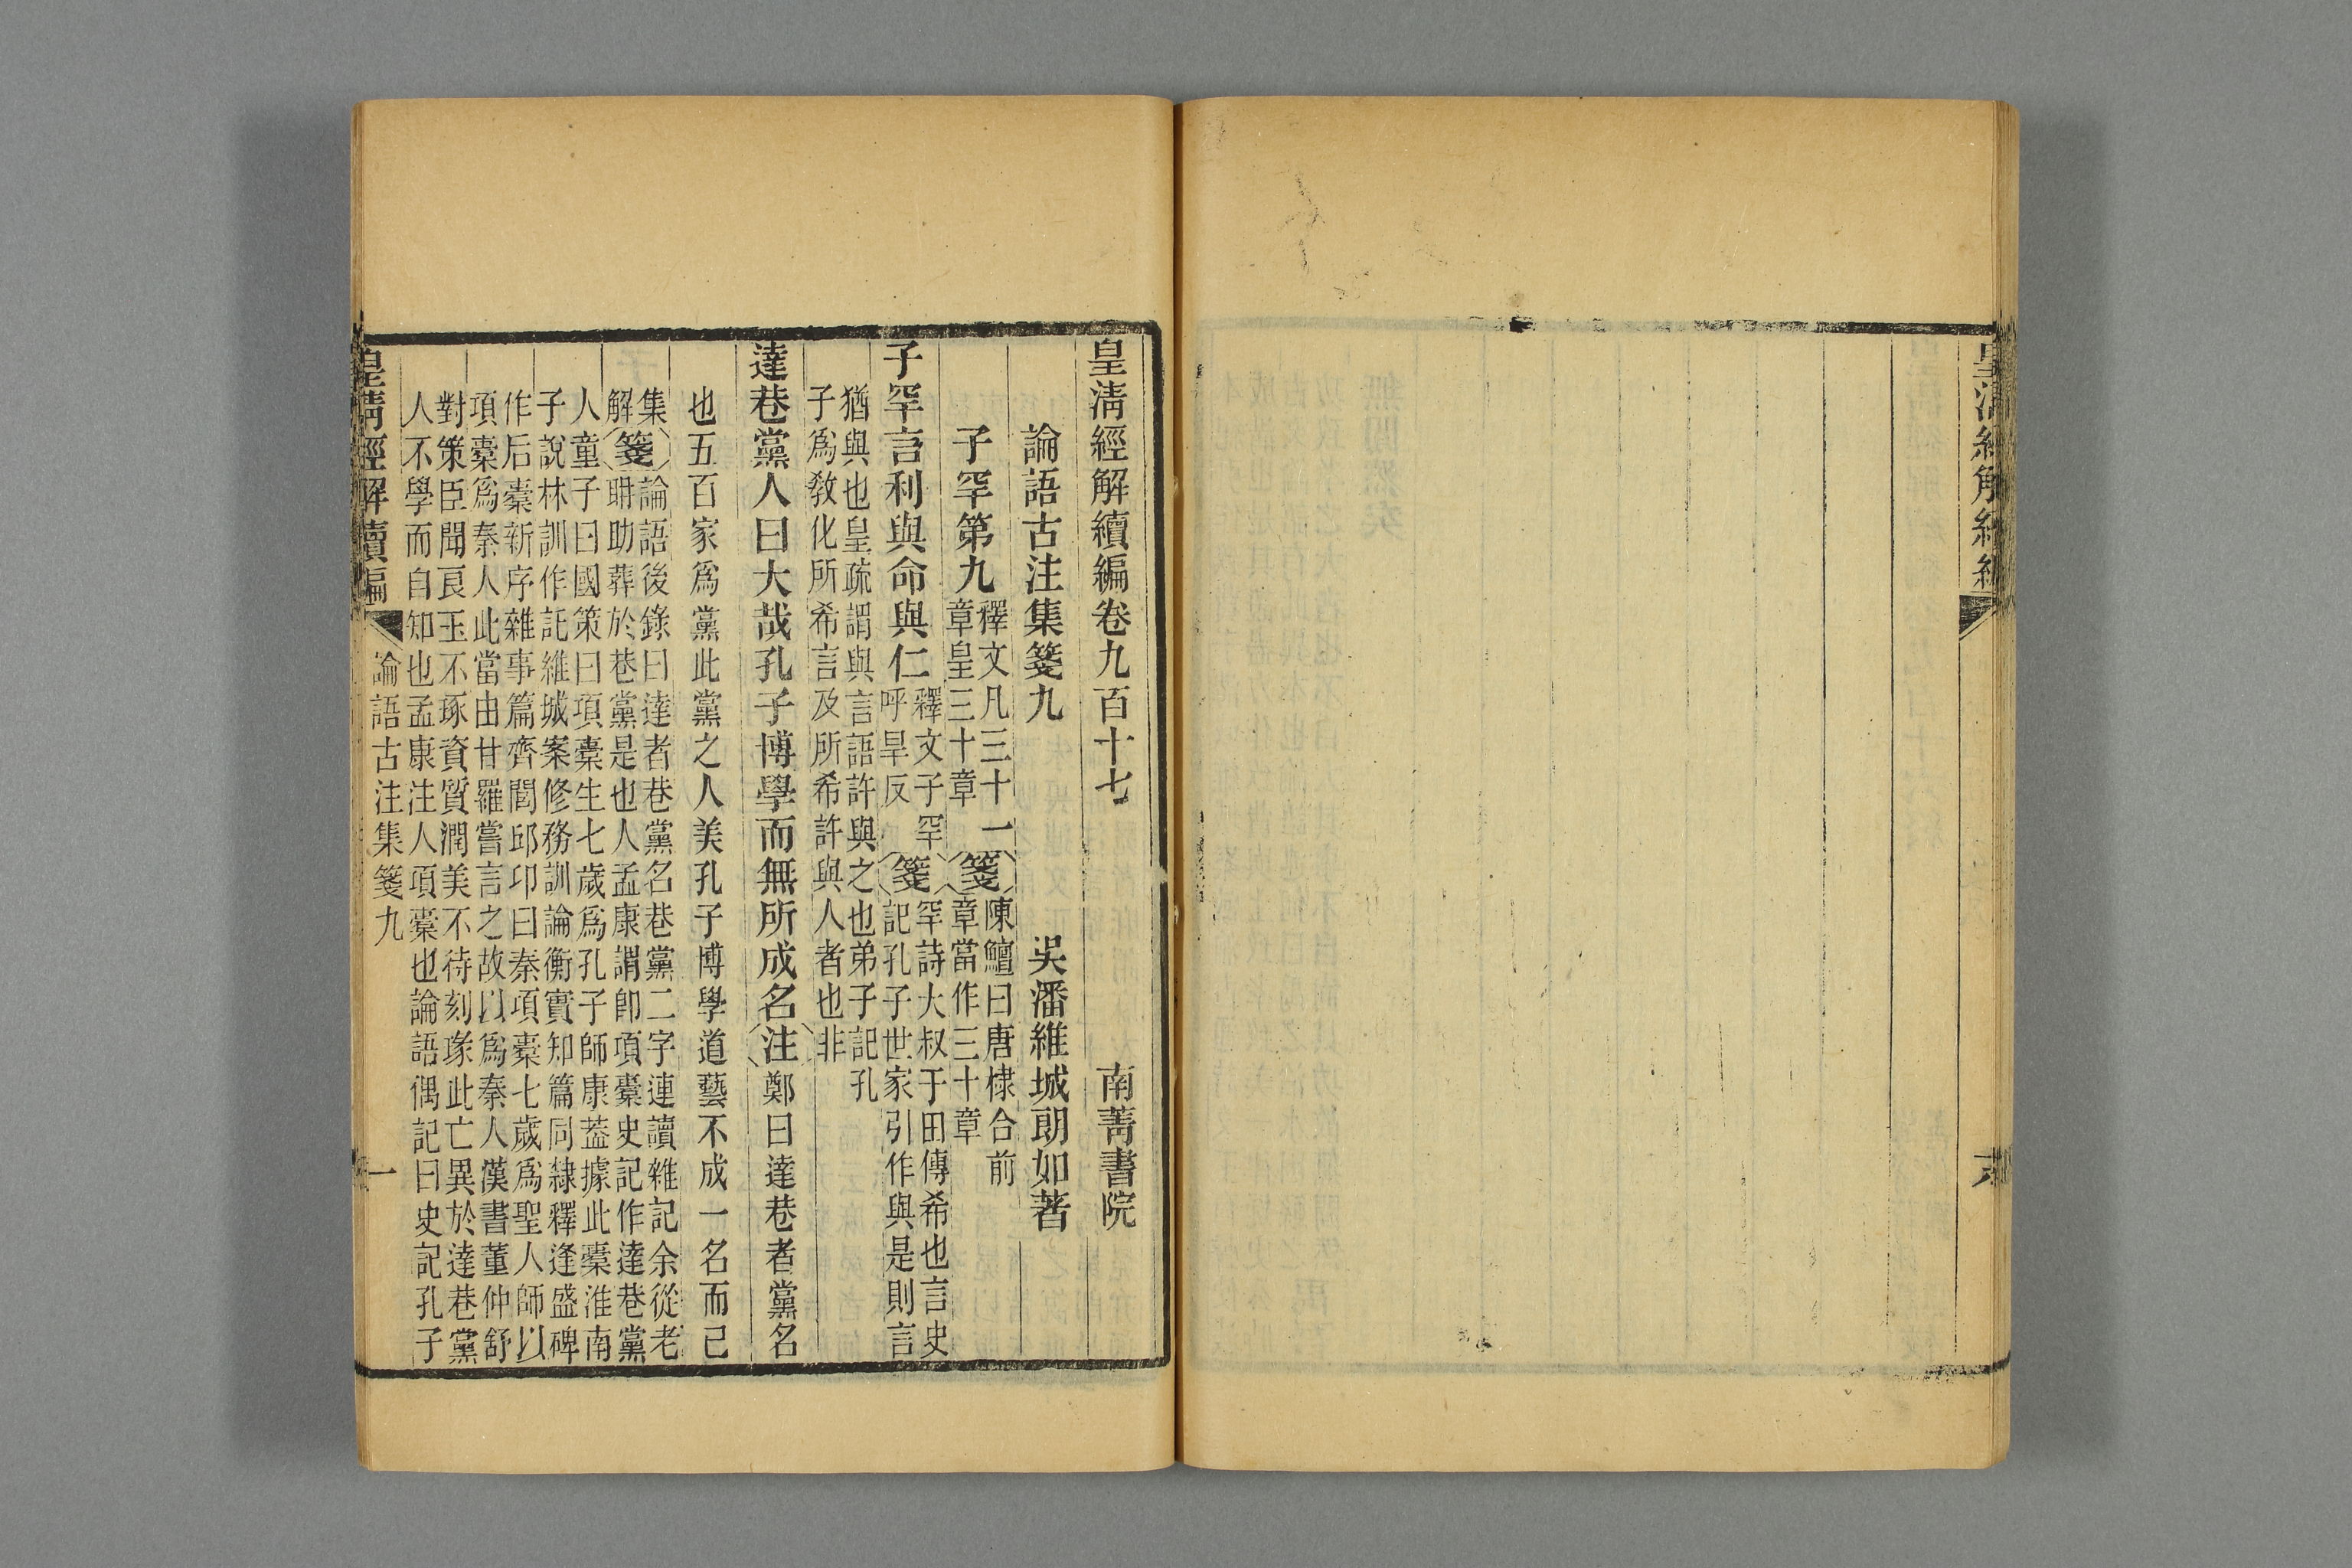 皇清經解續編卷九百十七 南菁書院
論語古注集箋九 吳潘維城朗如著
子罕第九
釋文凡三十一
章皇三十章
箋
陳鱣曰唐棣合前
章當作三十章
子罕言利與命與仁
釋文子罕
呼旱反
箋
罕詩大叔于田傳希也言史
記孔子世家引作與是則言
猶與也皇疏謂與言語許與之也弟子記孔
子爲敎化所希言及所希許與人者也非
達巷黨人曰大哉孔子博學而無所成名注鄭曰達巷者黨名
也五百家爲黨此黨之人美孔子博學道藝不成一名而已
集
解
箋
論語後錄曰達者巷黨名巷黨二字連讀雜記余從老
耼助葬於巷黨是也人孟康謂卽項橐史記作達巷黨
人童子曰國策曰項橐生七歲爲孔子師康蓋據此橐淮南
子說林訓作託維城案修務訓論衡實知篇同隸釋逢盛碑
作后橐新序雜事篇齊閭邱卭曰秦項橐七歲爲聖人師以
項橐爲秦人此當由甘羅嘗言之故以爲秦人漢書董仲舒
對策臣聞良玉不琢資質潤美不待刻瑑此亡異於達巷黨
人不學而自知也孟康注人項橐也論語偶記曰史記孔子
皇清經解續編 論語古注集箋九 一